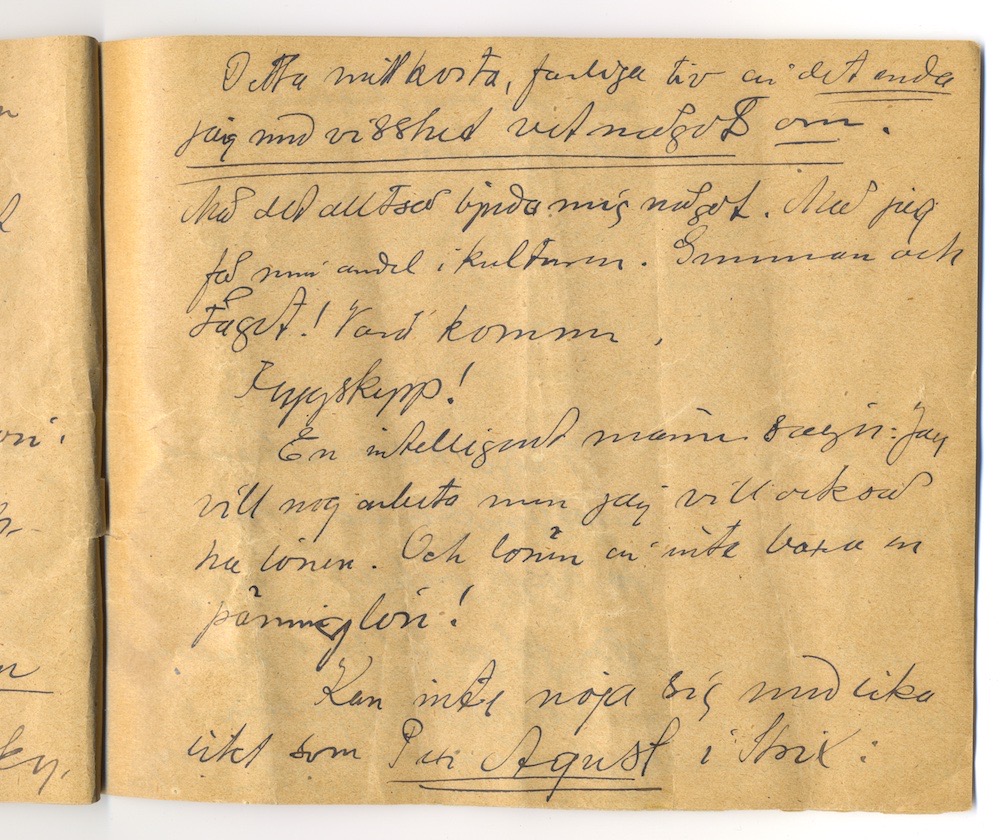 Detta mitt korta, farliga liv är det enda
jag med visshet vet något om.
Må det alltså bjuda mig något. Må jag
få min andel i kulturen. Gumman och
Tåget! Vard kommer,
Fyyyskypp!
En intelligent männ. säger: Jag
vill nog arbeta men jag vill också
ha lönen. Och lönen är inte bara en
pänninglön!
Kan inte nöja sig med lika
likt som Per Agust i Strix: